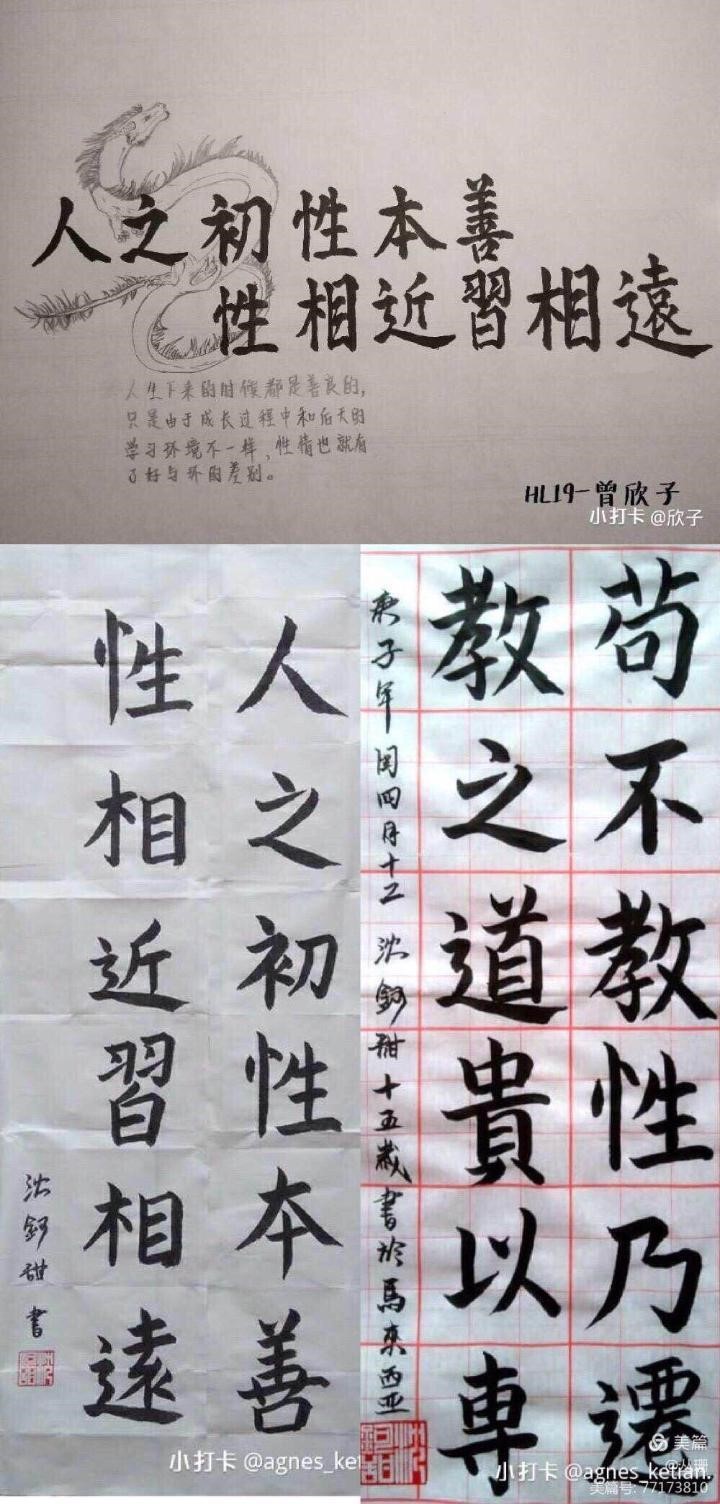 人之初性本善
性相近習相遠
人生下来的时候都是善良的,
只是由于成长过程中和后天的
学习环境不一样,性情也就有
了好与坏的差别。
HL19-曾欣子
小打卡 @欣子
人之初性本善
性相近習相遠
沈鈳甜書
小打卡 @agnes_ket
苟不教性乃遷
教之道貴以專
庚子年閏四月十二 沈鈳甜十五歲書於馬來西亚
小打卡 @agnes_ketian.
美篇
美篇号: 77173810